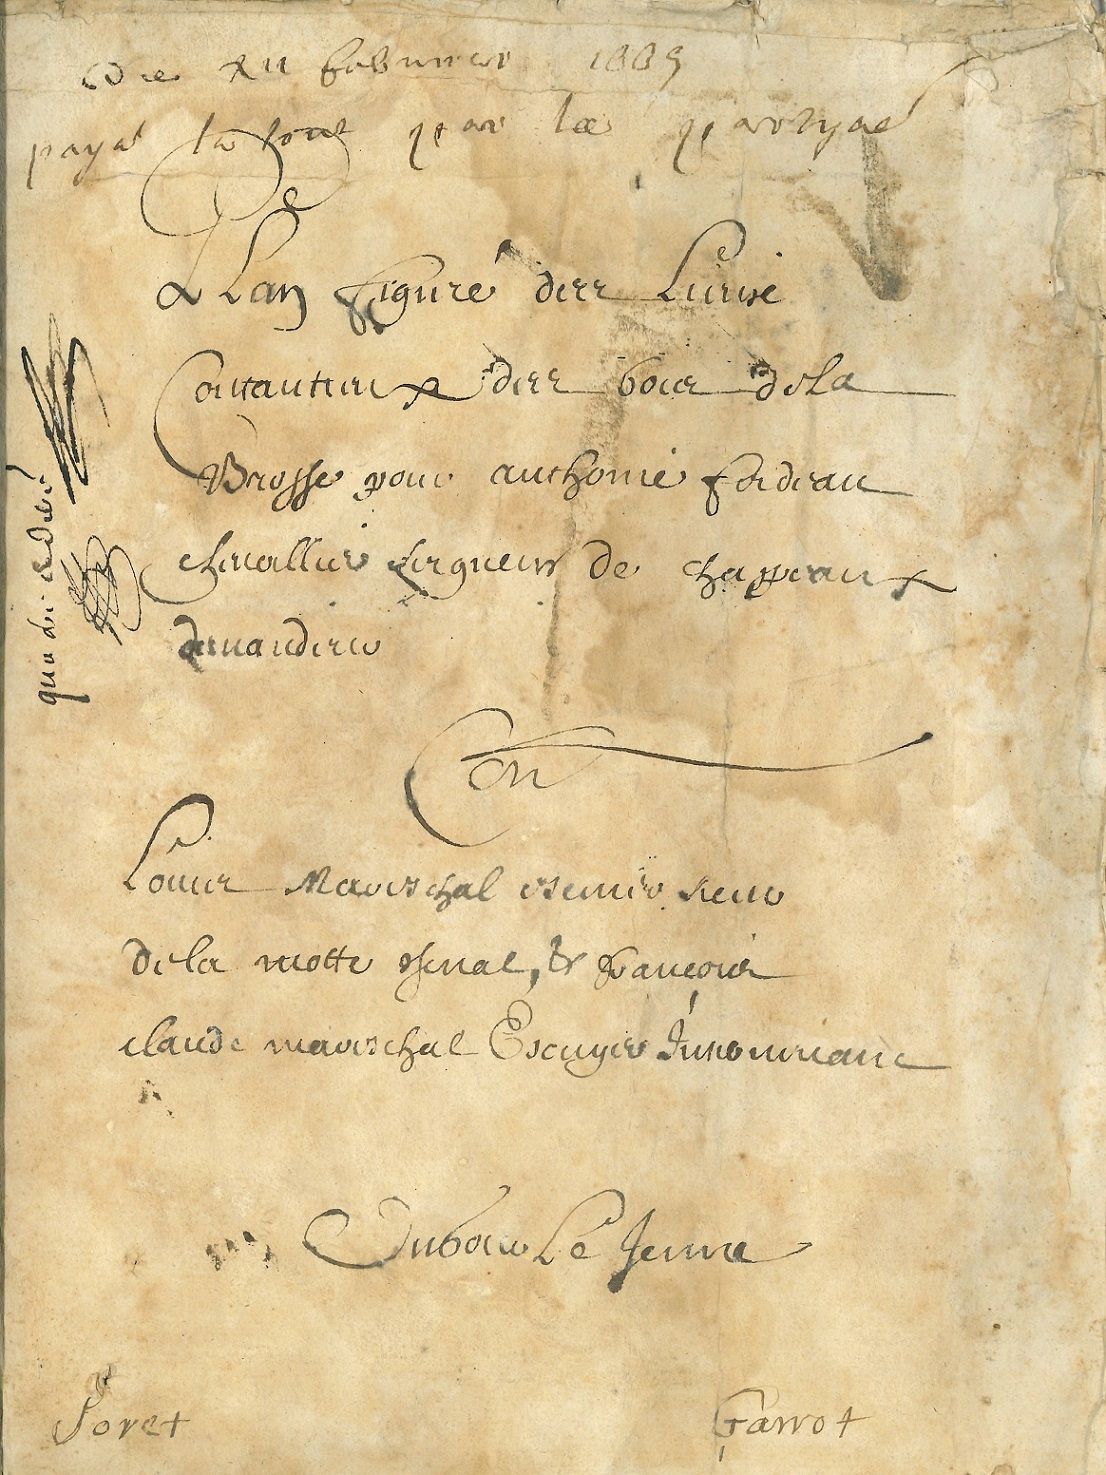 Die xii februarii 1665
payé la tout par la partyae
De
Plan figuré des Lieux
Contantieux des bois de la
Brosse pour anthoine foideau
chevallier seigneur de chappeaux
demandeur
Con
Louis Mareschal escuier sieur
de la motte &, francois
claude mareschal Escuyer Intervenant
Dubois Le Jeune
Joret
Garrot